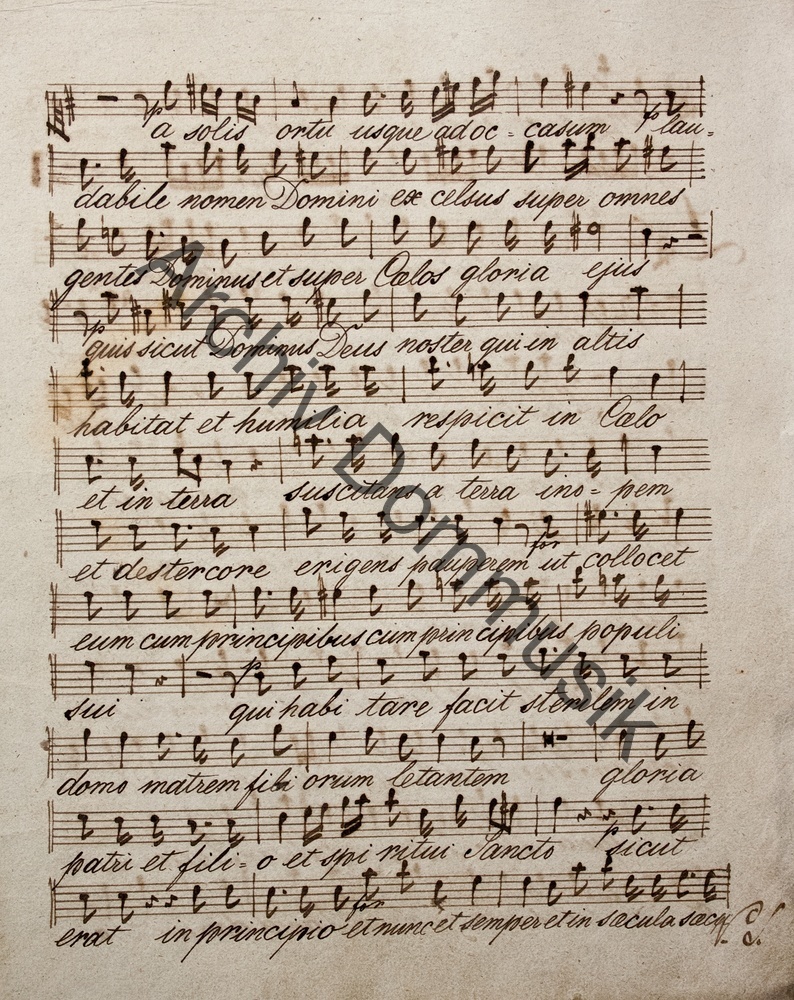 a solis ortu usque ad oc = casum lau =
dabile nomen Domini ex celsus super omnes
gentes Dominus et super Cœlos gloria ejus
quis sicut Dominus Deus noster qui in altis
habitat et humilia respicit in Cœlo
et in terra suscitans a terra ino = pem
et destercore erigens pauperem for ut collocet
eum cum principibus cum principibus populi
sui qui habi tare facit sterilem in
domo matrem fili orum letantem gloria
patri et fili = o et spi ritui Sancto sicut
erat in principio for et nunc et semper et in sæcula sæcu
Archiv Dommusik